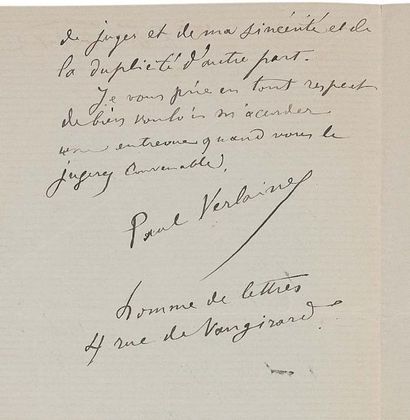 de juger et de ma sincérité et de
la duplicité d'autre part.
Je vous prie en tout respect
de bien vouloir m'accorder
une entrevue quand vous le
jugerez convenable,
Paul Verlaine
homme de lettres
4 rue de Vaugirard.